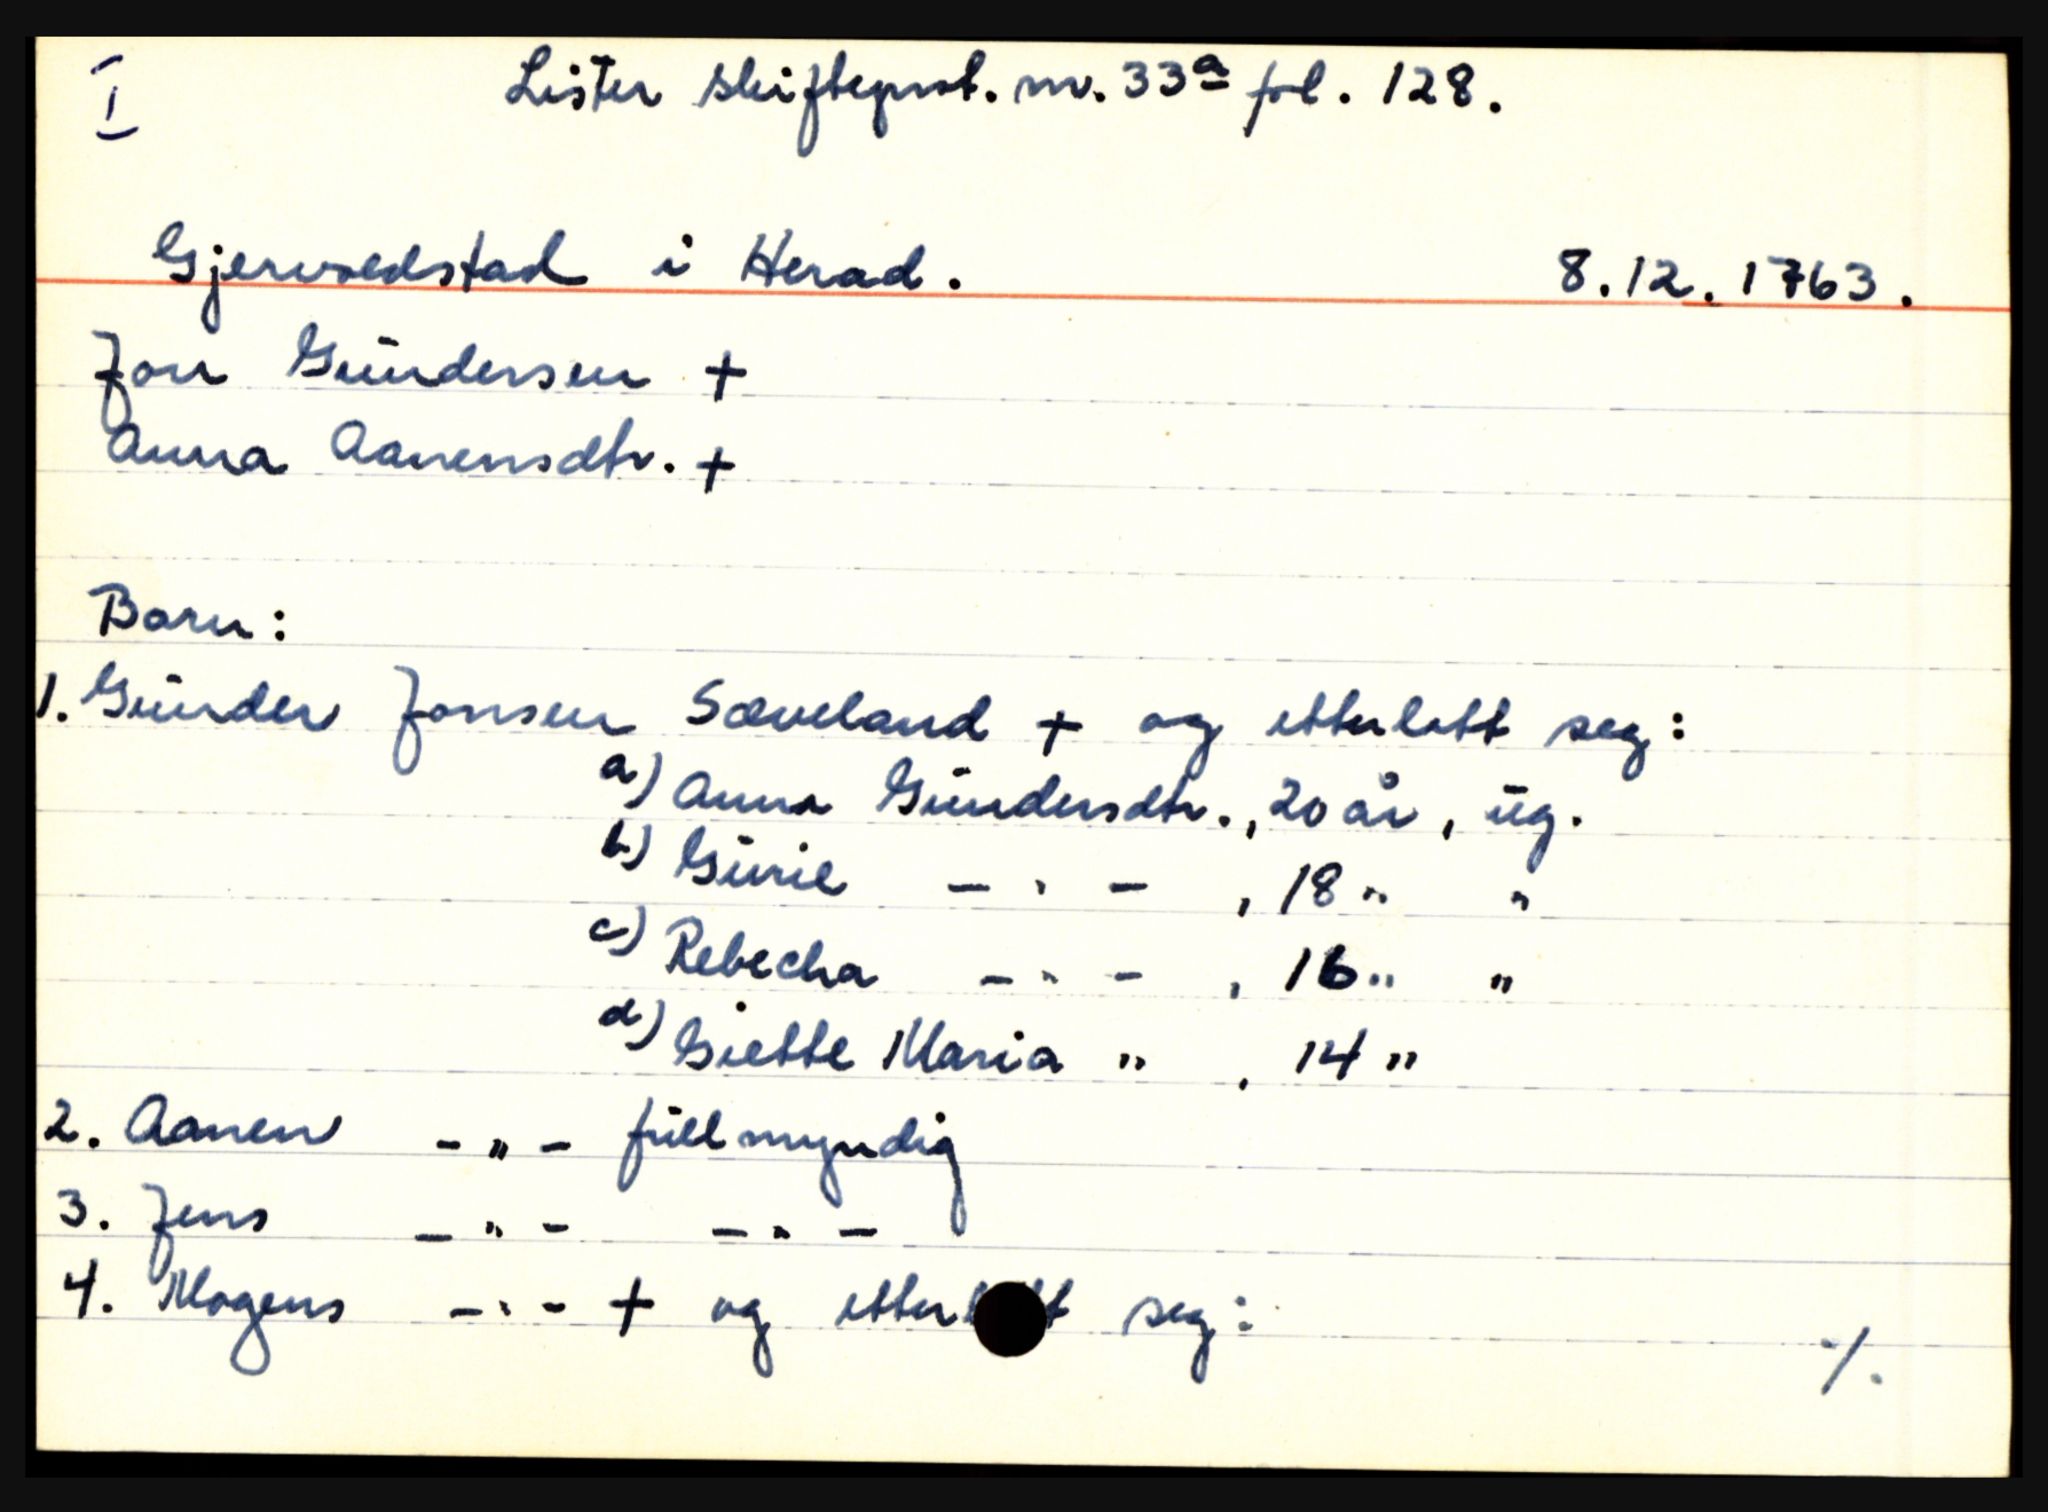 I
Lister skifteprot. nr. 33a fol. 128.
Gjervoldstad i Herad. 8.12.1763.
Jon Gundersen +
Anna Aanensdtr. +
Barn:
1. Gunder Jonsen Sæveland + og etterlatt seg:
a) Anna Gundersdtr., 20 år, ug.
b) Gurie - " - , 18 " "
c) Rebecha - " - , 16 " "
d) Giette Maria " , 14 "
2. Aanen - " - fullmyndig
3. Jens - " - - " -
4. Mogens - " - + og etterlatt seg:
./.